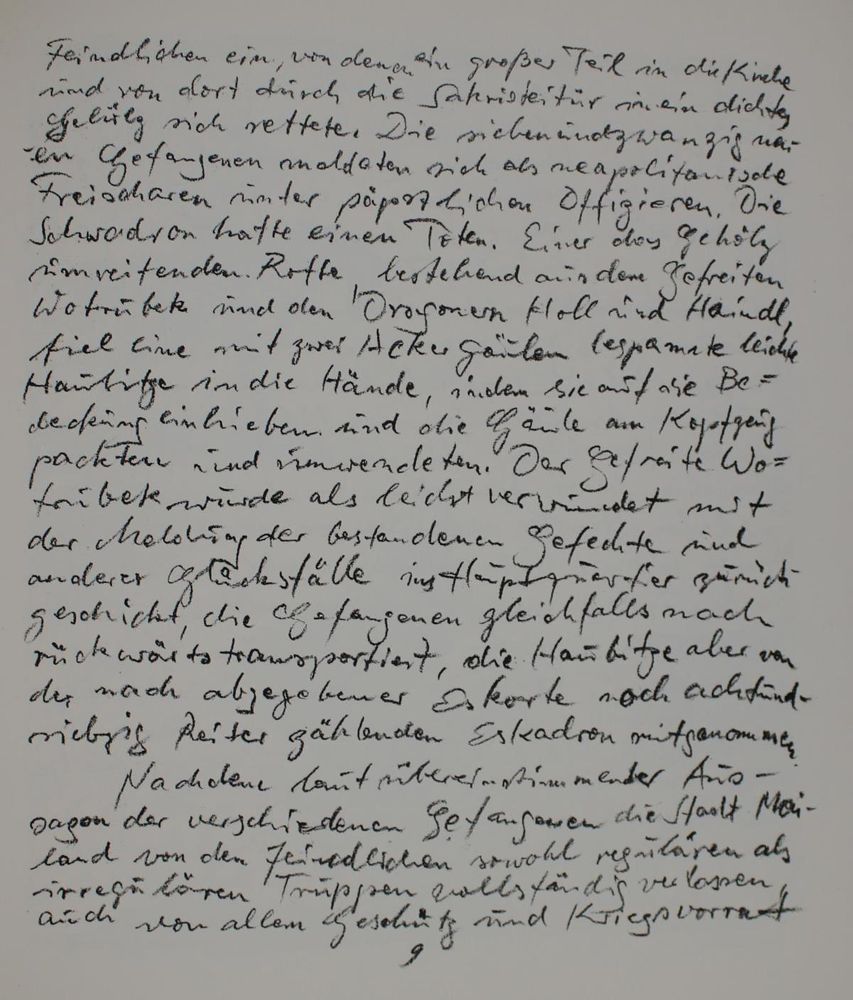 Feindlichen ein, von denen ein großer Teil in die Kirche
und von dort durch die Sakristeitür in ein dichtes
Gehölz sich rettete. Die siebenundzwanzig neu-
en Gefangenen meldeten sich als neapolitanische
Freischaren unter päpstlichen Offizieren. Die
Schwadron hatte einen Toten. Einer das Gehölz
umreitenden Rotte, bestehend aus dem Gefreiten
Wotrubek und den Dragonern Holl und Haindl,
fiel eine mit zwei Ackergäulen bespannte leichte
Haubitze in die Hände, indem sie auf die Be=
deckung einhieben und die Gäule am Kopfzeug
packten und umwendeten. Der Gefreite Wo=
trubek wurde als leicht verwundet mit
der Meldung der bestandenen Gefechte und
anderer Glücksfälle ins Hauptquartier zurück
geschickt, die Gefangenen gleichfalls nach
rückwärts transportiert, die Haubitze aber von
der nach abgegebener Eskorte noch achtund-
siebzig Reiter zählenden Eskadron mitgenommen.
Nachdem laut übereinstimmender Aus-
sagen der verschiedenen Gefangenen die Stadt Mai-
land von den Feindlichen sowohl regulären als
irregulären Truppen vollständig verlassen,
auch von allem Geschütz und Kriegsvorrat
9